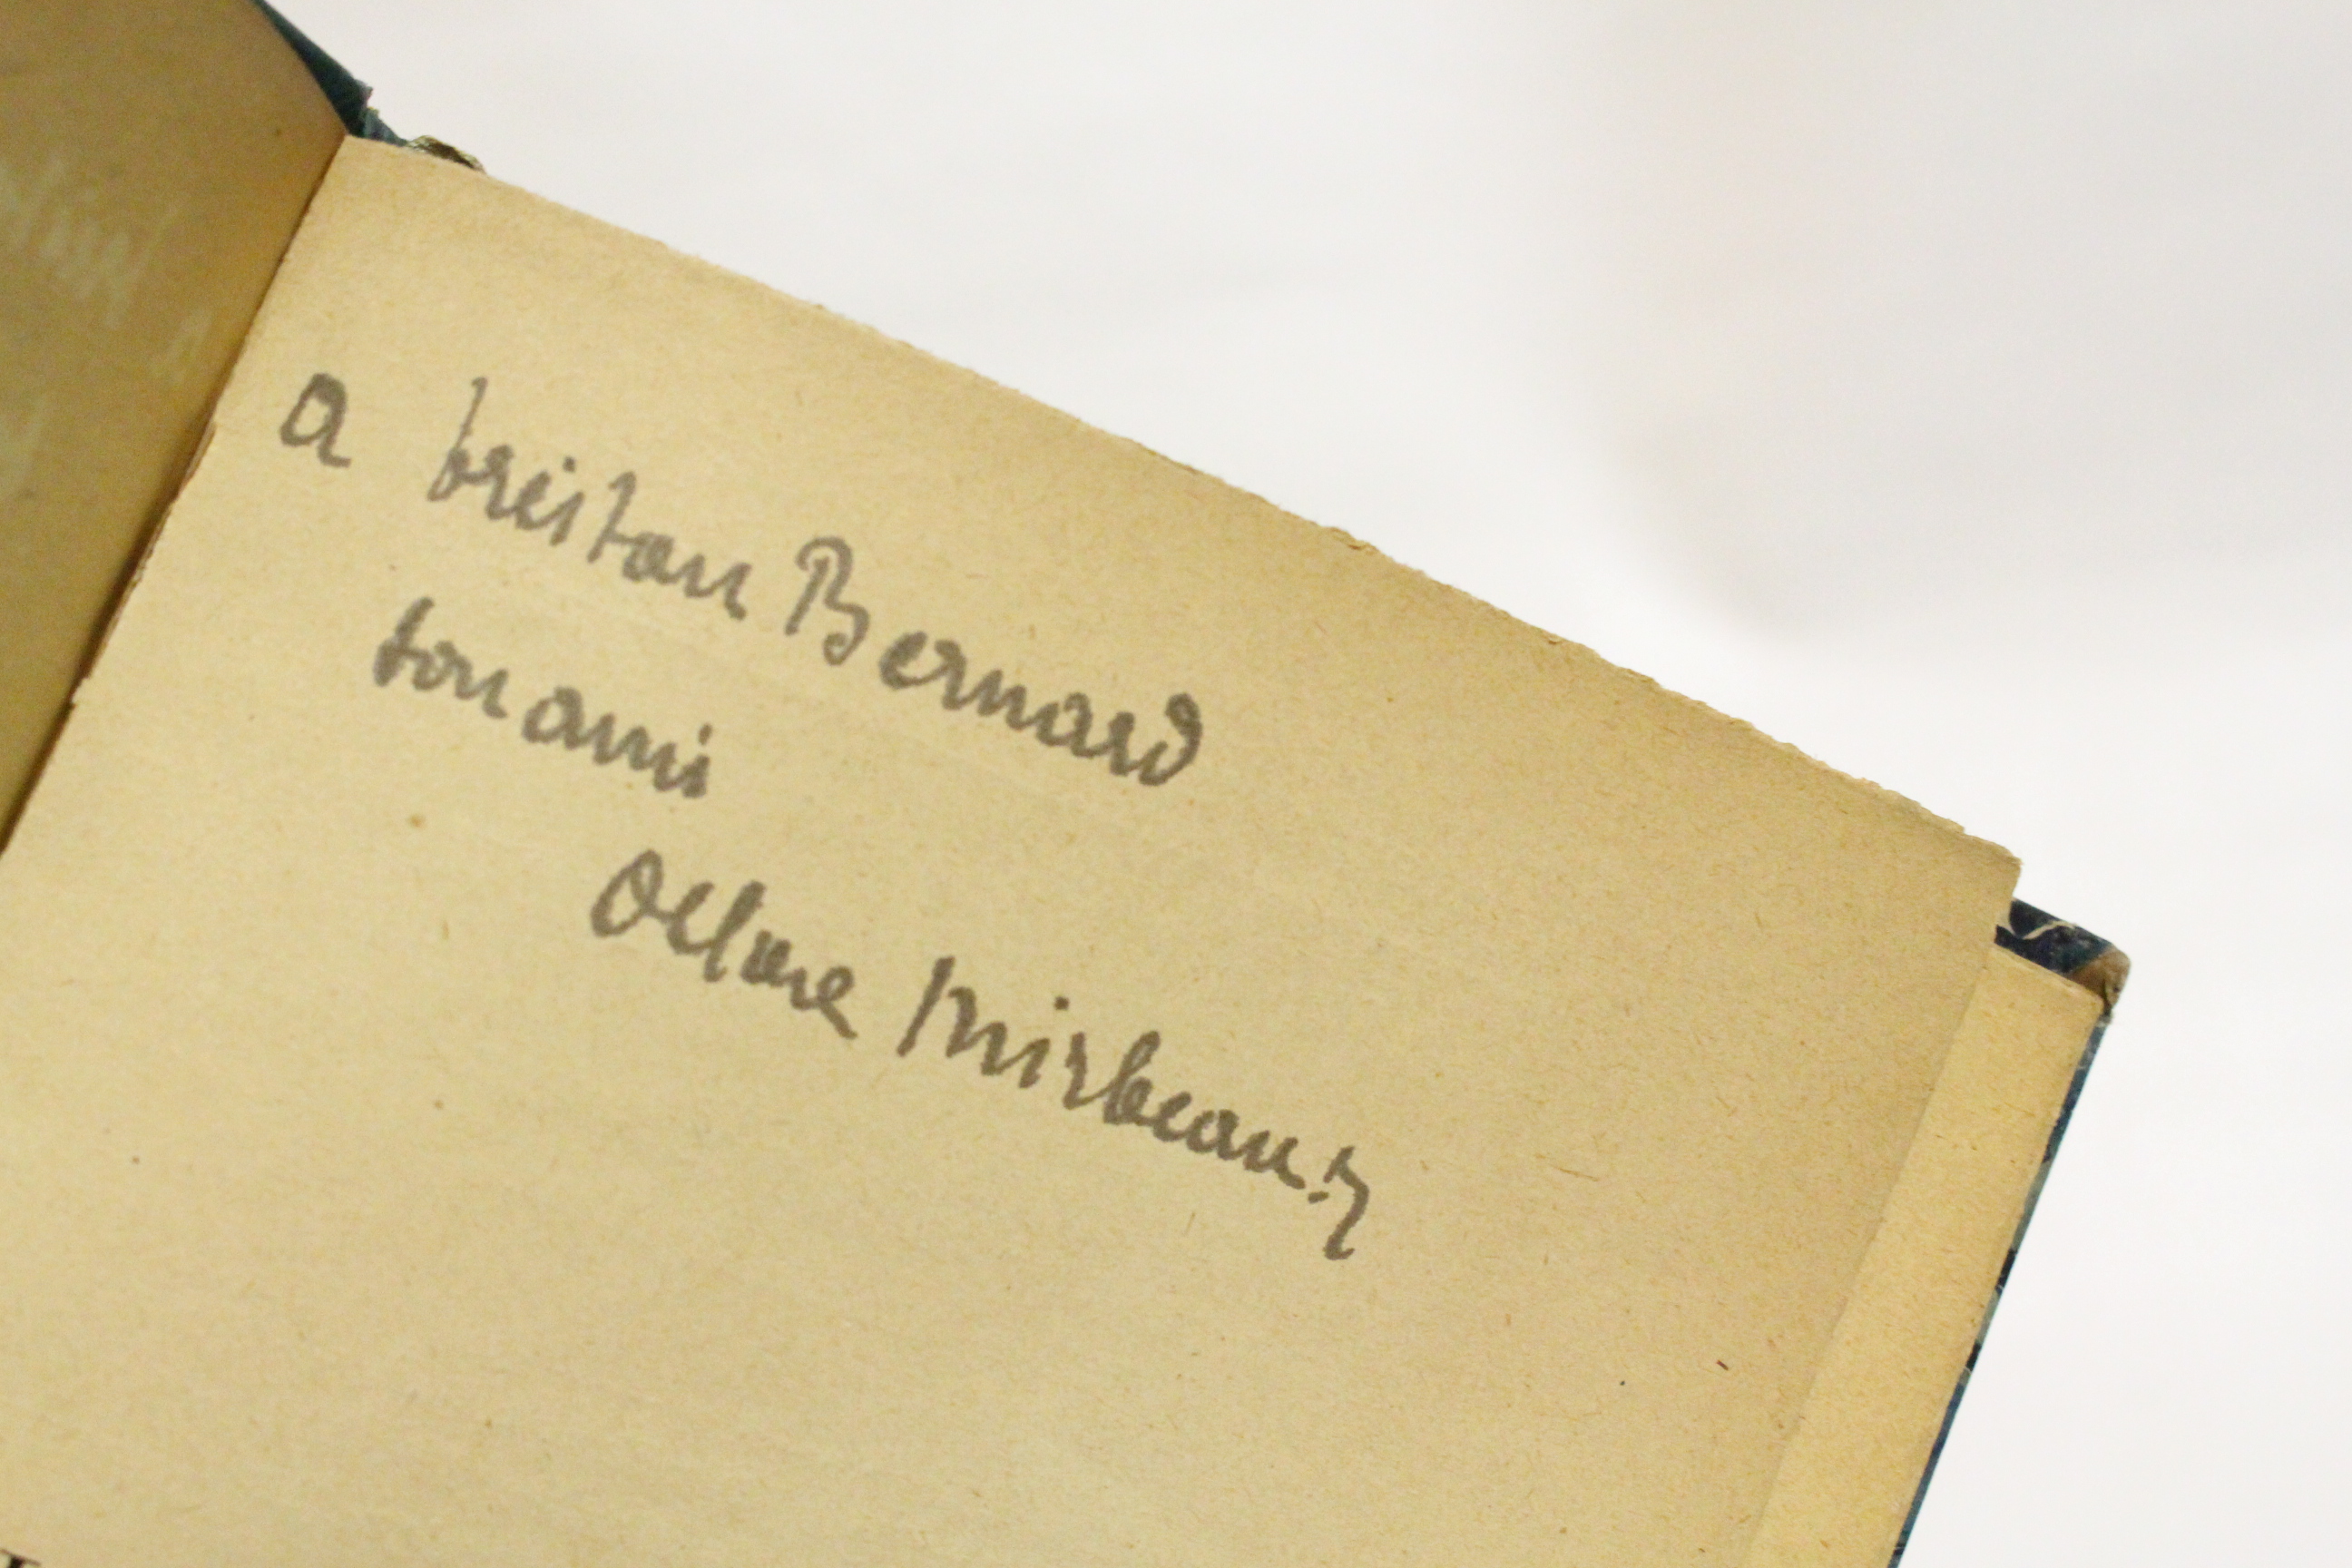 a tristan Bernard
son ami
Octave Mirbeau